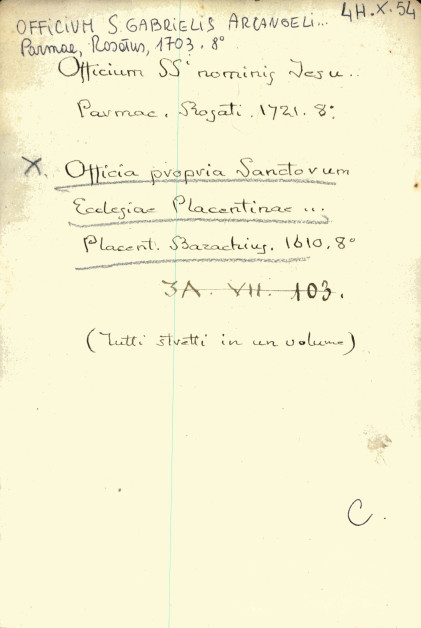 4H.X.54
OFFICIUM S. GABRIELIS ARCANGELI...
Parmae, Rosatus, 1703. 8°
Officium SS. nominis Jesu..
Parmae. Rosati. 1721. 8°
X. Officia propria Sanctorum
Ecclesiae Placentinae ...
Placent. Bazachius. 1610. 8°
3A. VII. 103.
(Tutti stretti in un volume)
C.